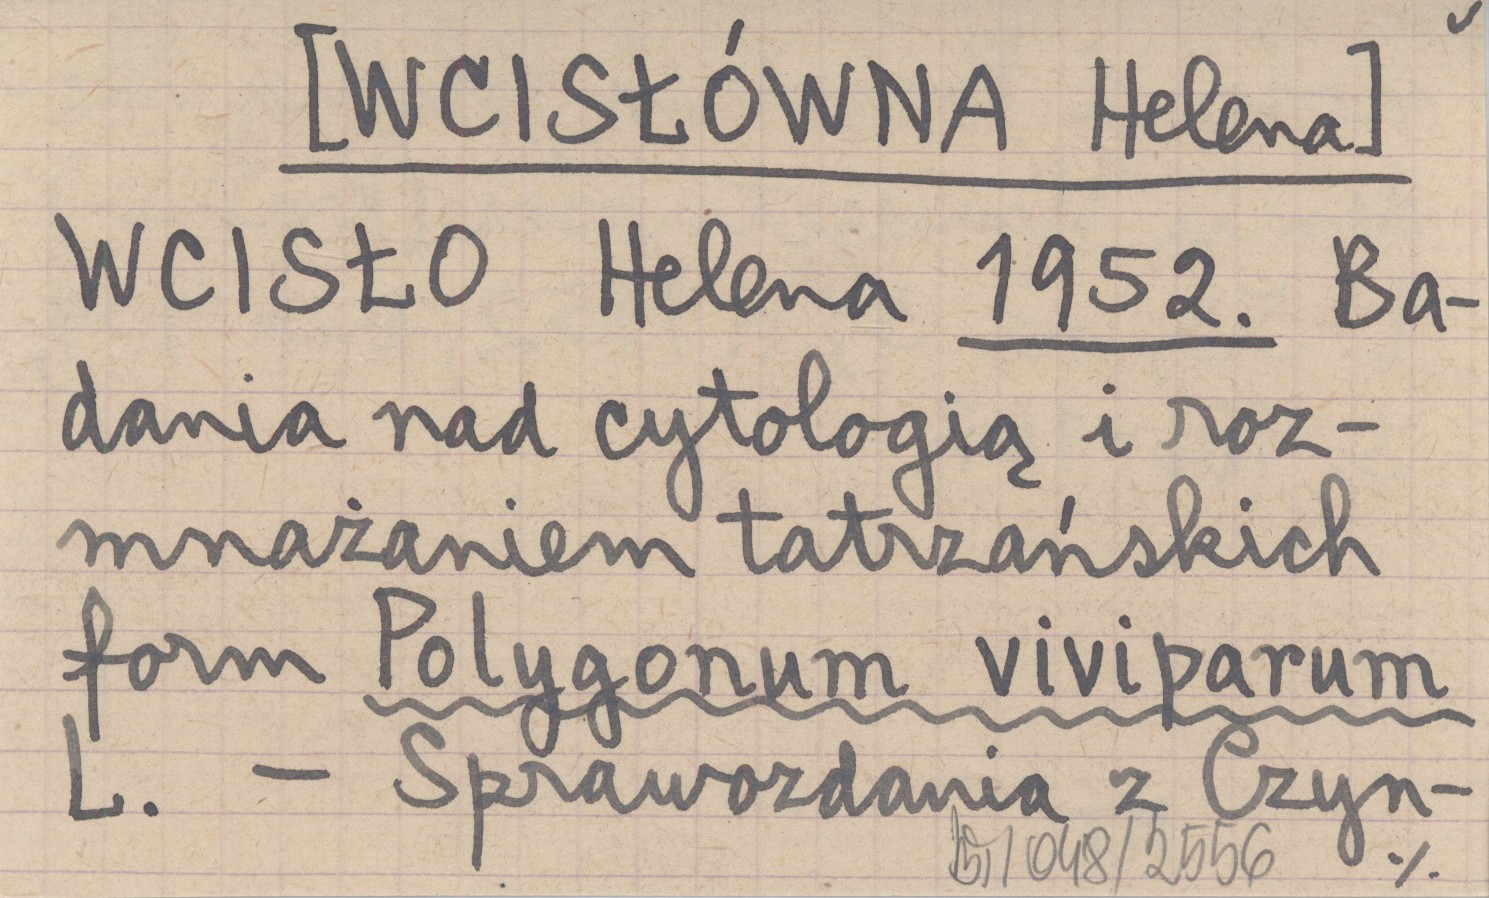 [WCISŁÓWNA Helena]
WCISŁO Helena 1952. Ba-
dania nad cytologią i roz-
mnażaniem tatrzańskich
form Polygonum viviparum
L. — Sprawozdania z Czyn-
/048/2556 ./.